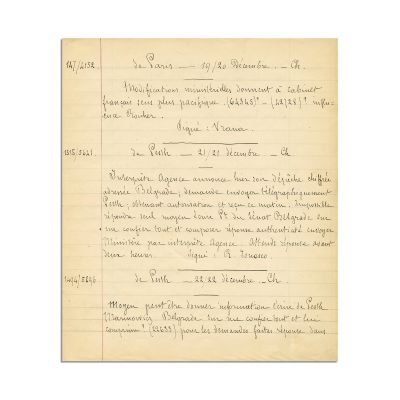 147/2132. de Paris — 19/20 Décembre. — Ch.
Modifications ministérielles donnent à cabinet
français sens plus pacifique. (64343)? — (42)28)? influ-
ence Rouher.
Signé: Vrana.
de Pesth — 21/21 décembre. — Ch
Interprète Agence annonce hier son dépêche chiffrée
adressée Belgrade; demande envoyer télégraphiquement
Pesth, obtenant autorisation et reçu ce matin. Impossible
répondre seul moyen écrire Pt du Sénat Belgrade sur
me confier tout et composer réponse authenticité envoyer
Ministère par interprète Agence. Attends réponse avant
deux heures. Signé: R.
de Pesth — 22/22 décembre. — Ch.
Moyen peut être donner information écrire de Pesth
Belgrade sur me confier tout et leur
(12633) pour les demandes faites réponse dans